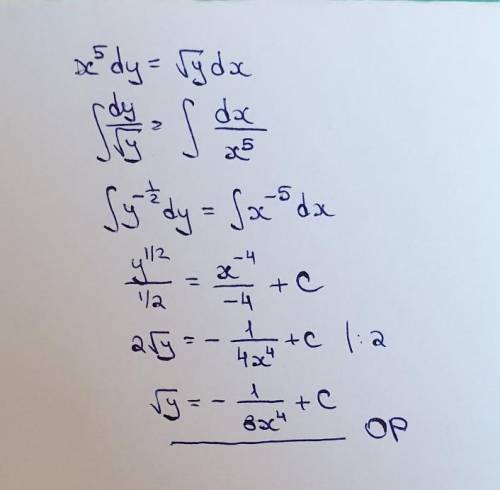 x⁵dy = √y dx
∫ dy/√y = ∫ dx/x⁵
∫ y^(-1/2) dy = ∫ x⁻⁵ dx
y^(1/2)/(1/2) = x⁻⁴/-4 + C
2√y = - 1/(4x⁴) + C |: 2
√y = - 1/(8x⁴) + C
OP